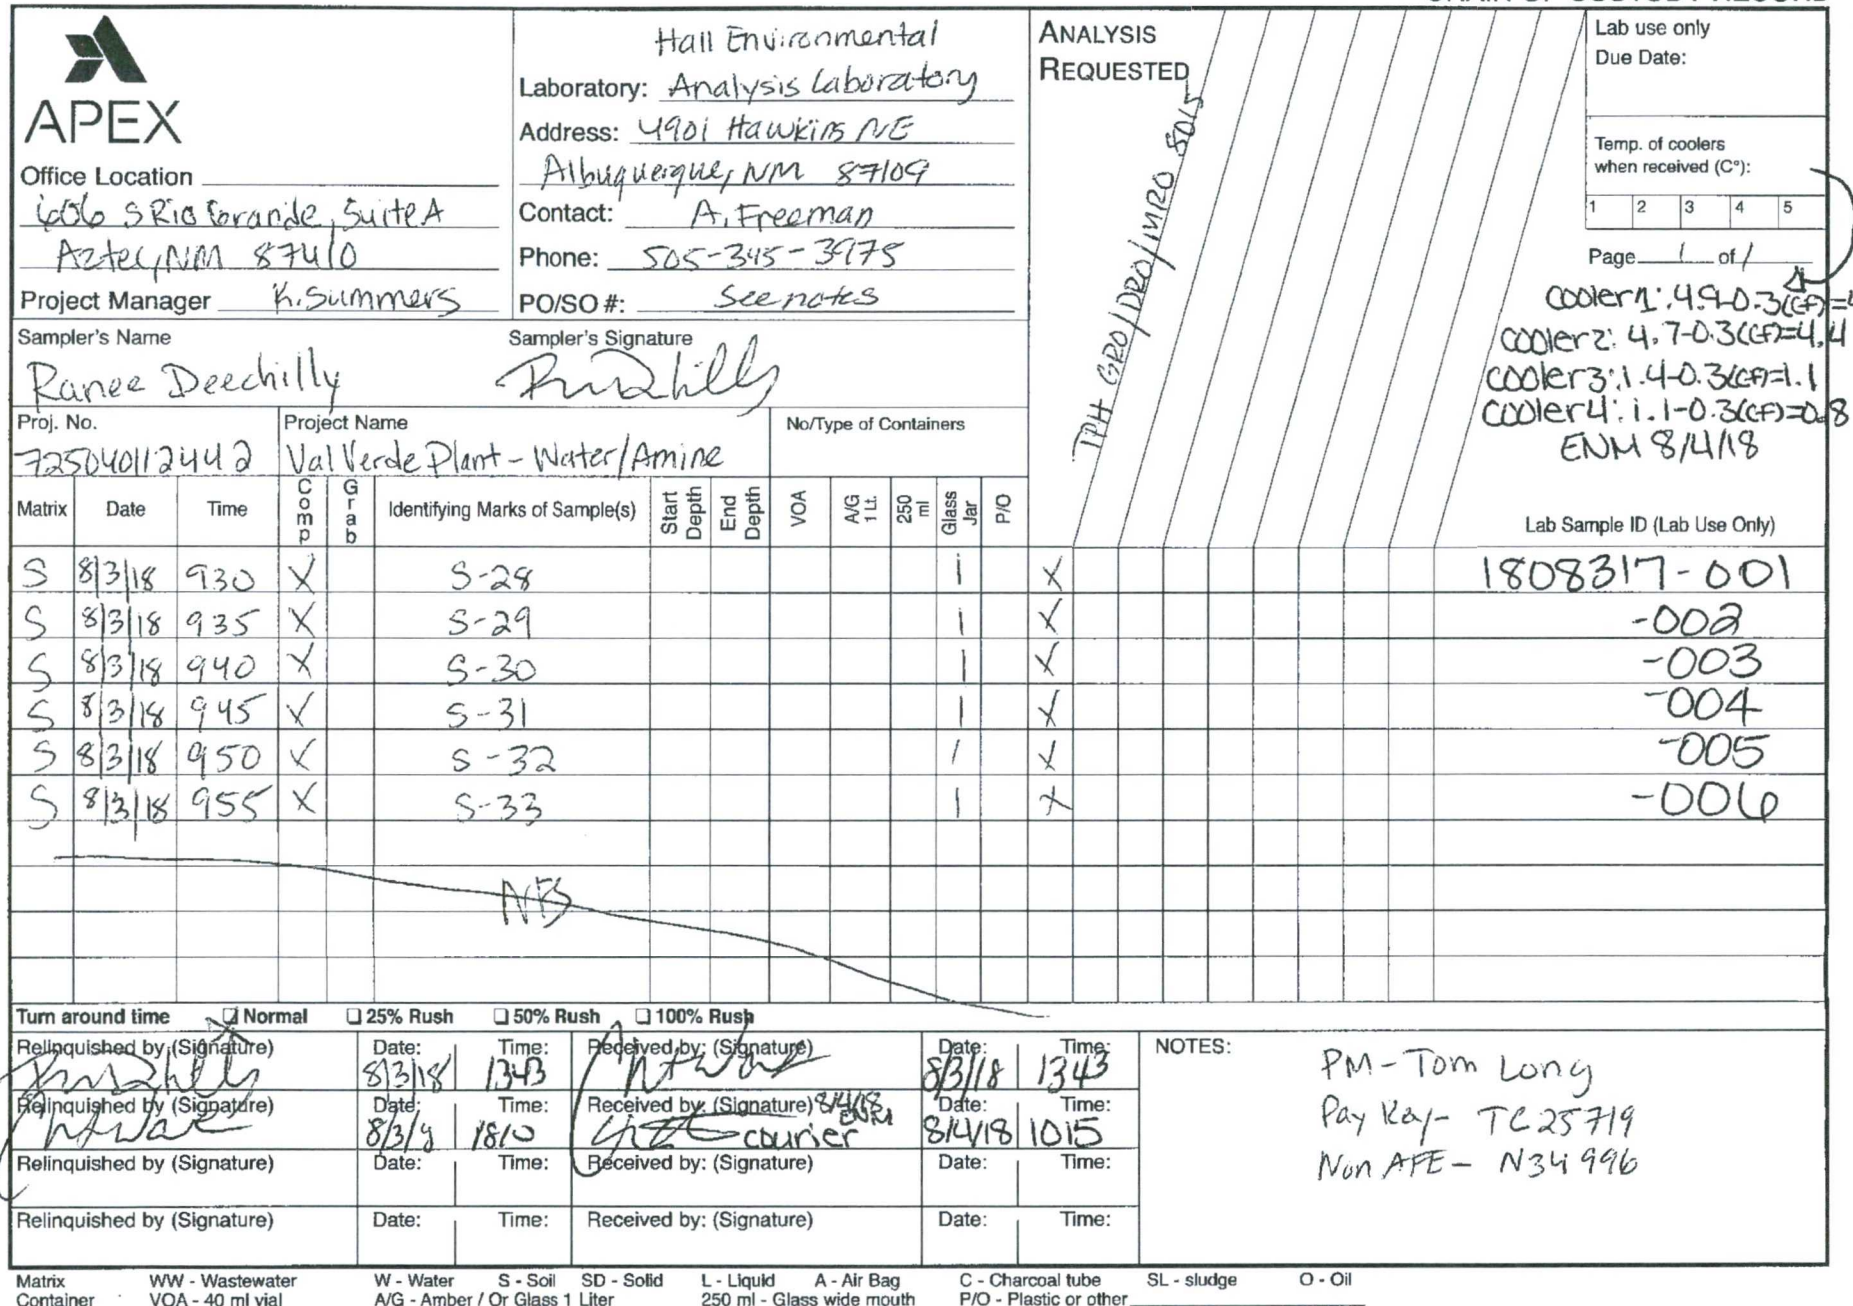 APEX
Office Location
606 S Rio Grande, Suite A
Aztec, NM 87410
Project Manager K. Summers
Hall Environmental
Laboratory: Analysis Laboratory
Address: 4901 Hawkins NE
Albuquerque, NM 87109
Contact: A. Freeman
Phone: 505-345-3975
PO/SO #: See notes
ANALYSIS
REQUESTED
TPH GRO/DRO/MRO 8015
Lab use only
Due Date:
Temp. of coolers
when received (C°):
1 2 3 4 5
Page 1 of 1
Cooler 1: 4.9-0.3(CF)=4
Cooler 2: 4.7-0.3(CF)=4.4
Cooler 3: 1.4-0.3(CF)=1.1
Cooler 4: 1.1-0.3(CF)=0.8
ENM 8/4/18
Sampler's Name
Ranee Deechilly
Sampler's Signature
Proj. No.
725040112442
Project Name
Val Verde Plant - Water/Amine
No/Type of Containers
Matrix Date Time Comp Grab Identifying Marks of Sample(s) Start Depth End Depth VOA A/G 1 Lt. 250 ml Glass Jar P/O Lab Sample ID (Lab Use Only)
S 8/3/18 930 X S-28 1 X 1808317-001
S 8/3/18 935 X S-29 1 X -002
S 8/3/18 940 X S-30 1 X -003
S 8/3/18 945 X S-31 1 X -004
S 8/3/18 950 X S-32 1 X -005
S 8/3/18 955 X S-33 1 X -006
Turn around time Normal 25% Rush 50% Rush 100% Rush
Relinquished by (Signature) Date: 8/3/18 Time: 1343 Received by: (Signature) Date: 8/3/18 Time: 1343
Relinquished by (Signature) Date: Time: 1810 Received by: (Signature) 8/4/18 ENM courier Date: 8/4/18 Time: 1015
Relinquished by (Signature) Date: Time: Received by: (Signature) Date: Time:
Relinquished by (Signature) Date: Time: Received by: (Signature) Date: Time:
NOTES:
PM - Tom Long
Pay Key - TC25719
Non AFE - N34996
Matrix WW - Wastewater W - Water S - Soil SD - Solid L - Liquid A - Air Bag C - Charcoal tube SL - sludge O - Oil
Container VOA - 40 ml vial A/G - Amber / Or Glass 1 Liter 250 ml - Glass wide mouth P/O - Plastic or other